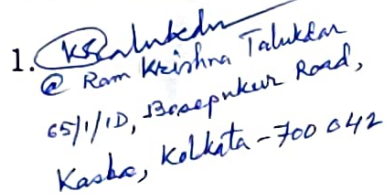 1.
@ Ram Krishna Talukdar
65/1/1D, Bosepukur Road,
Kasba, Kolkata - 700 042